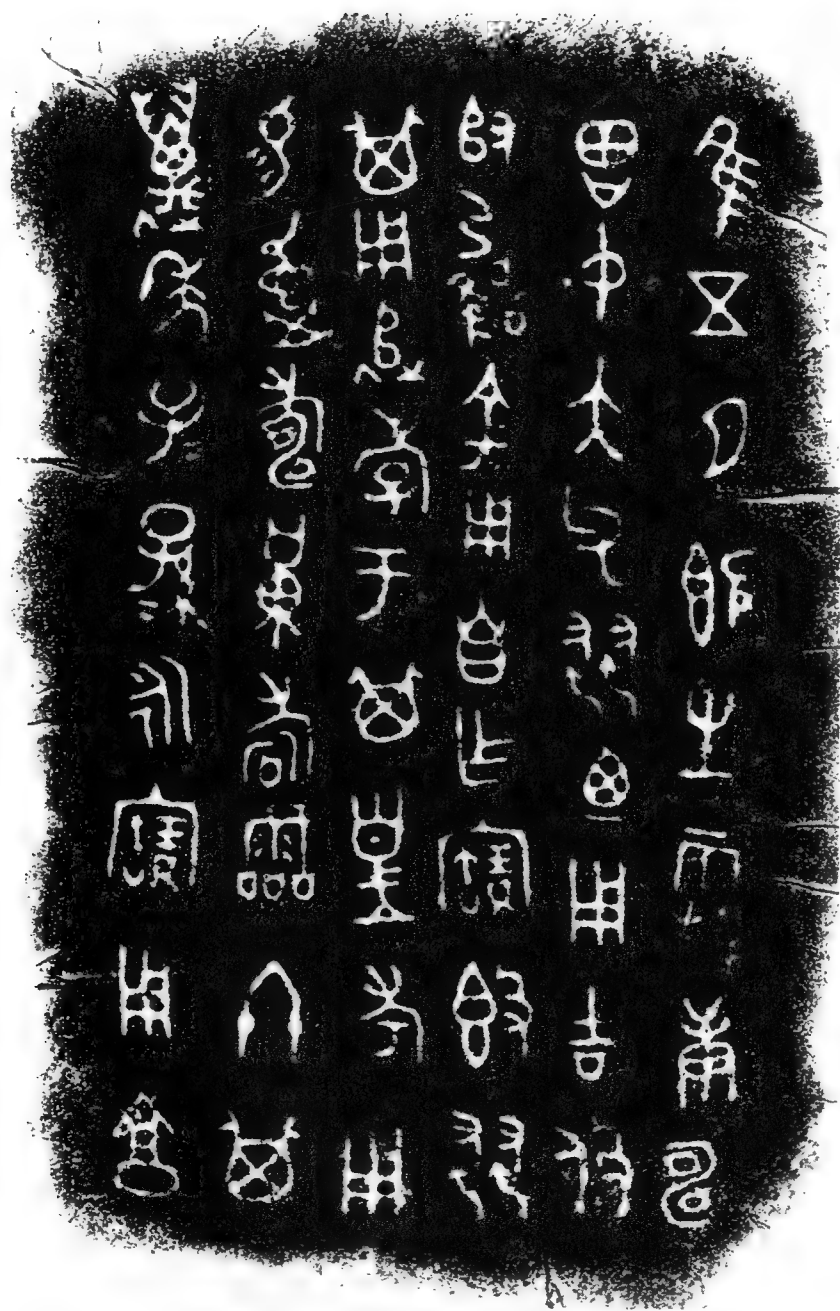 隹五月既生霸庚申
曾中大父蛕廼用吉攸
金用自乍寶𣪘蛕
其用追孝于其皇考用
易眉壽黃耇霝冬其
萬年子孫永寶用享